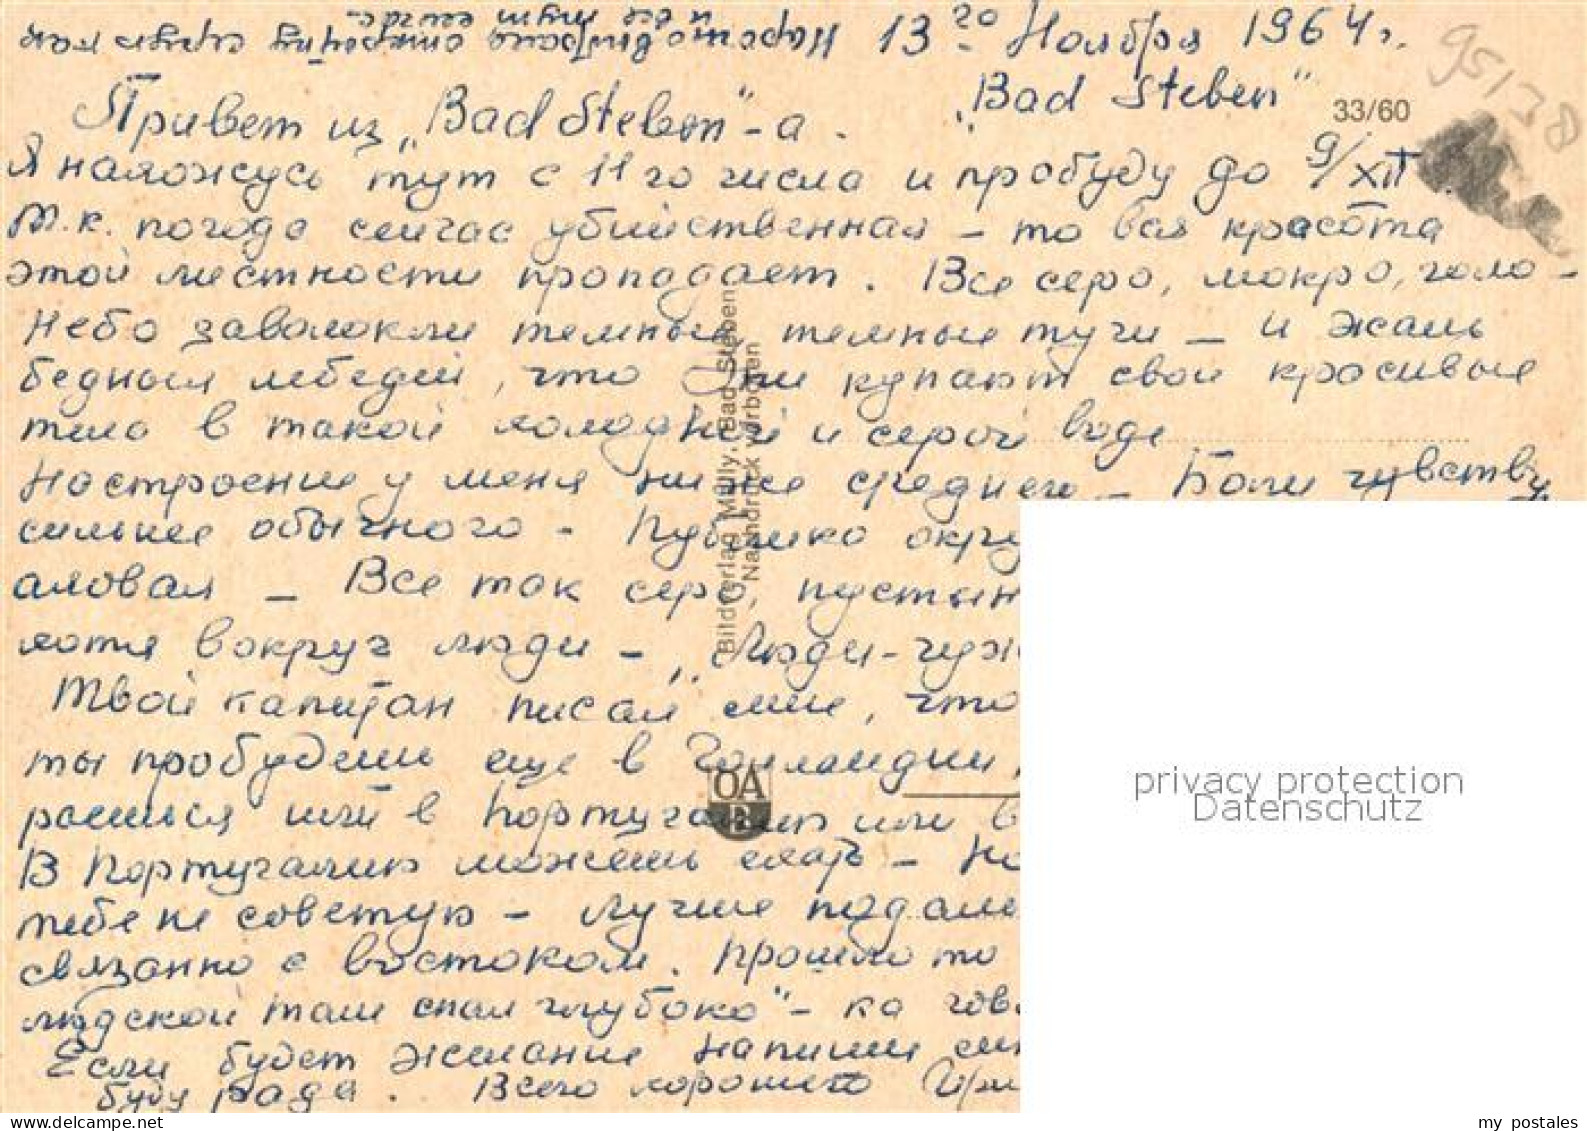 13го Ноября 1964 г.
„Bad Steben"
33/60
95138
Привет из „Bad Steben"-а.
Я нахожусь тут с 11го числа и пробуду до 9/XII.
Т.к. погода сейчас убийственная – то вся красота
этой местности пропадает. Все серо, мокро, голо –
Небо заволокли темные темные тучи – и жаль
бедных лебедей, что они купают свои красивые
тела в такой холодной и серой воде
Настроение у меня ниже среднего – Боли чувству
сильнее обычного – Публика окру
аловая – Все так серо, пустын
хотя вокруг люди – „Люди-чуж
Твой капитан писал мне, что
ты пробудешь еще в Голландии,
раешься или в Португалию или в
В Португалию можешь ехать – но
тебе не советую – Лучше подаль
связанно с востоком. Прошло то
людской там спал глубоко" – ка гов
Если будет желание напиши мн
буду рада. Всего хорошего Ири
Bildverlag Mülly, Bad Steben
Nachdruck verboten
OA
B
privacy protection
Datenschutz
my postales